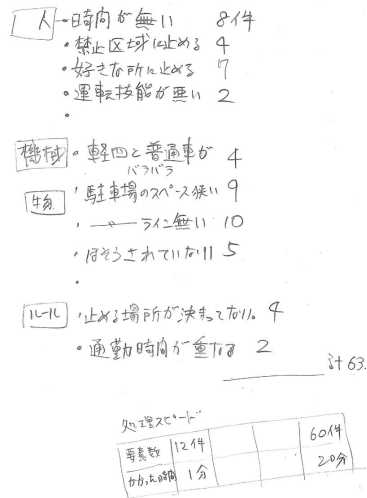 人 ・時間が無い 8件
・禁止区域に止める 4
・好きな所に止める 7
・運転技能が悪い 2
・
機械 ・軽四と普通車がバラバラ 4
物 ・駐車場のスペース狭い 9
・ 〃 ライン無い 10
・ほそうされていない 5
・
ルール ・止める場所が決まってない。 4
・通勤時間が重なる 2
計63.
処理スピード
要素数 12件 60件
かかった時間 1分 20分